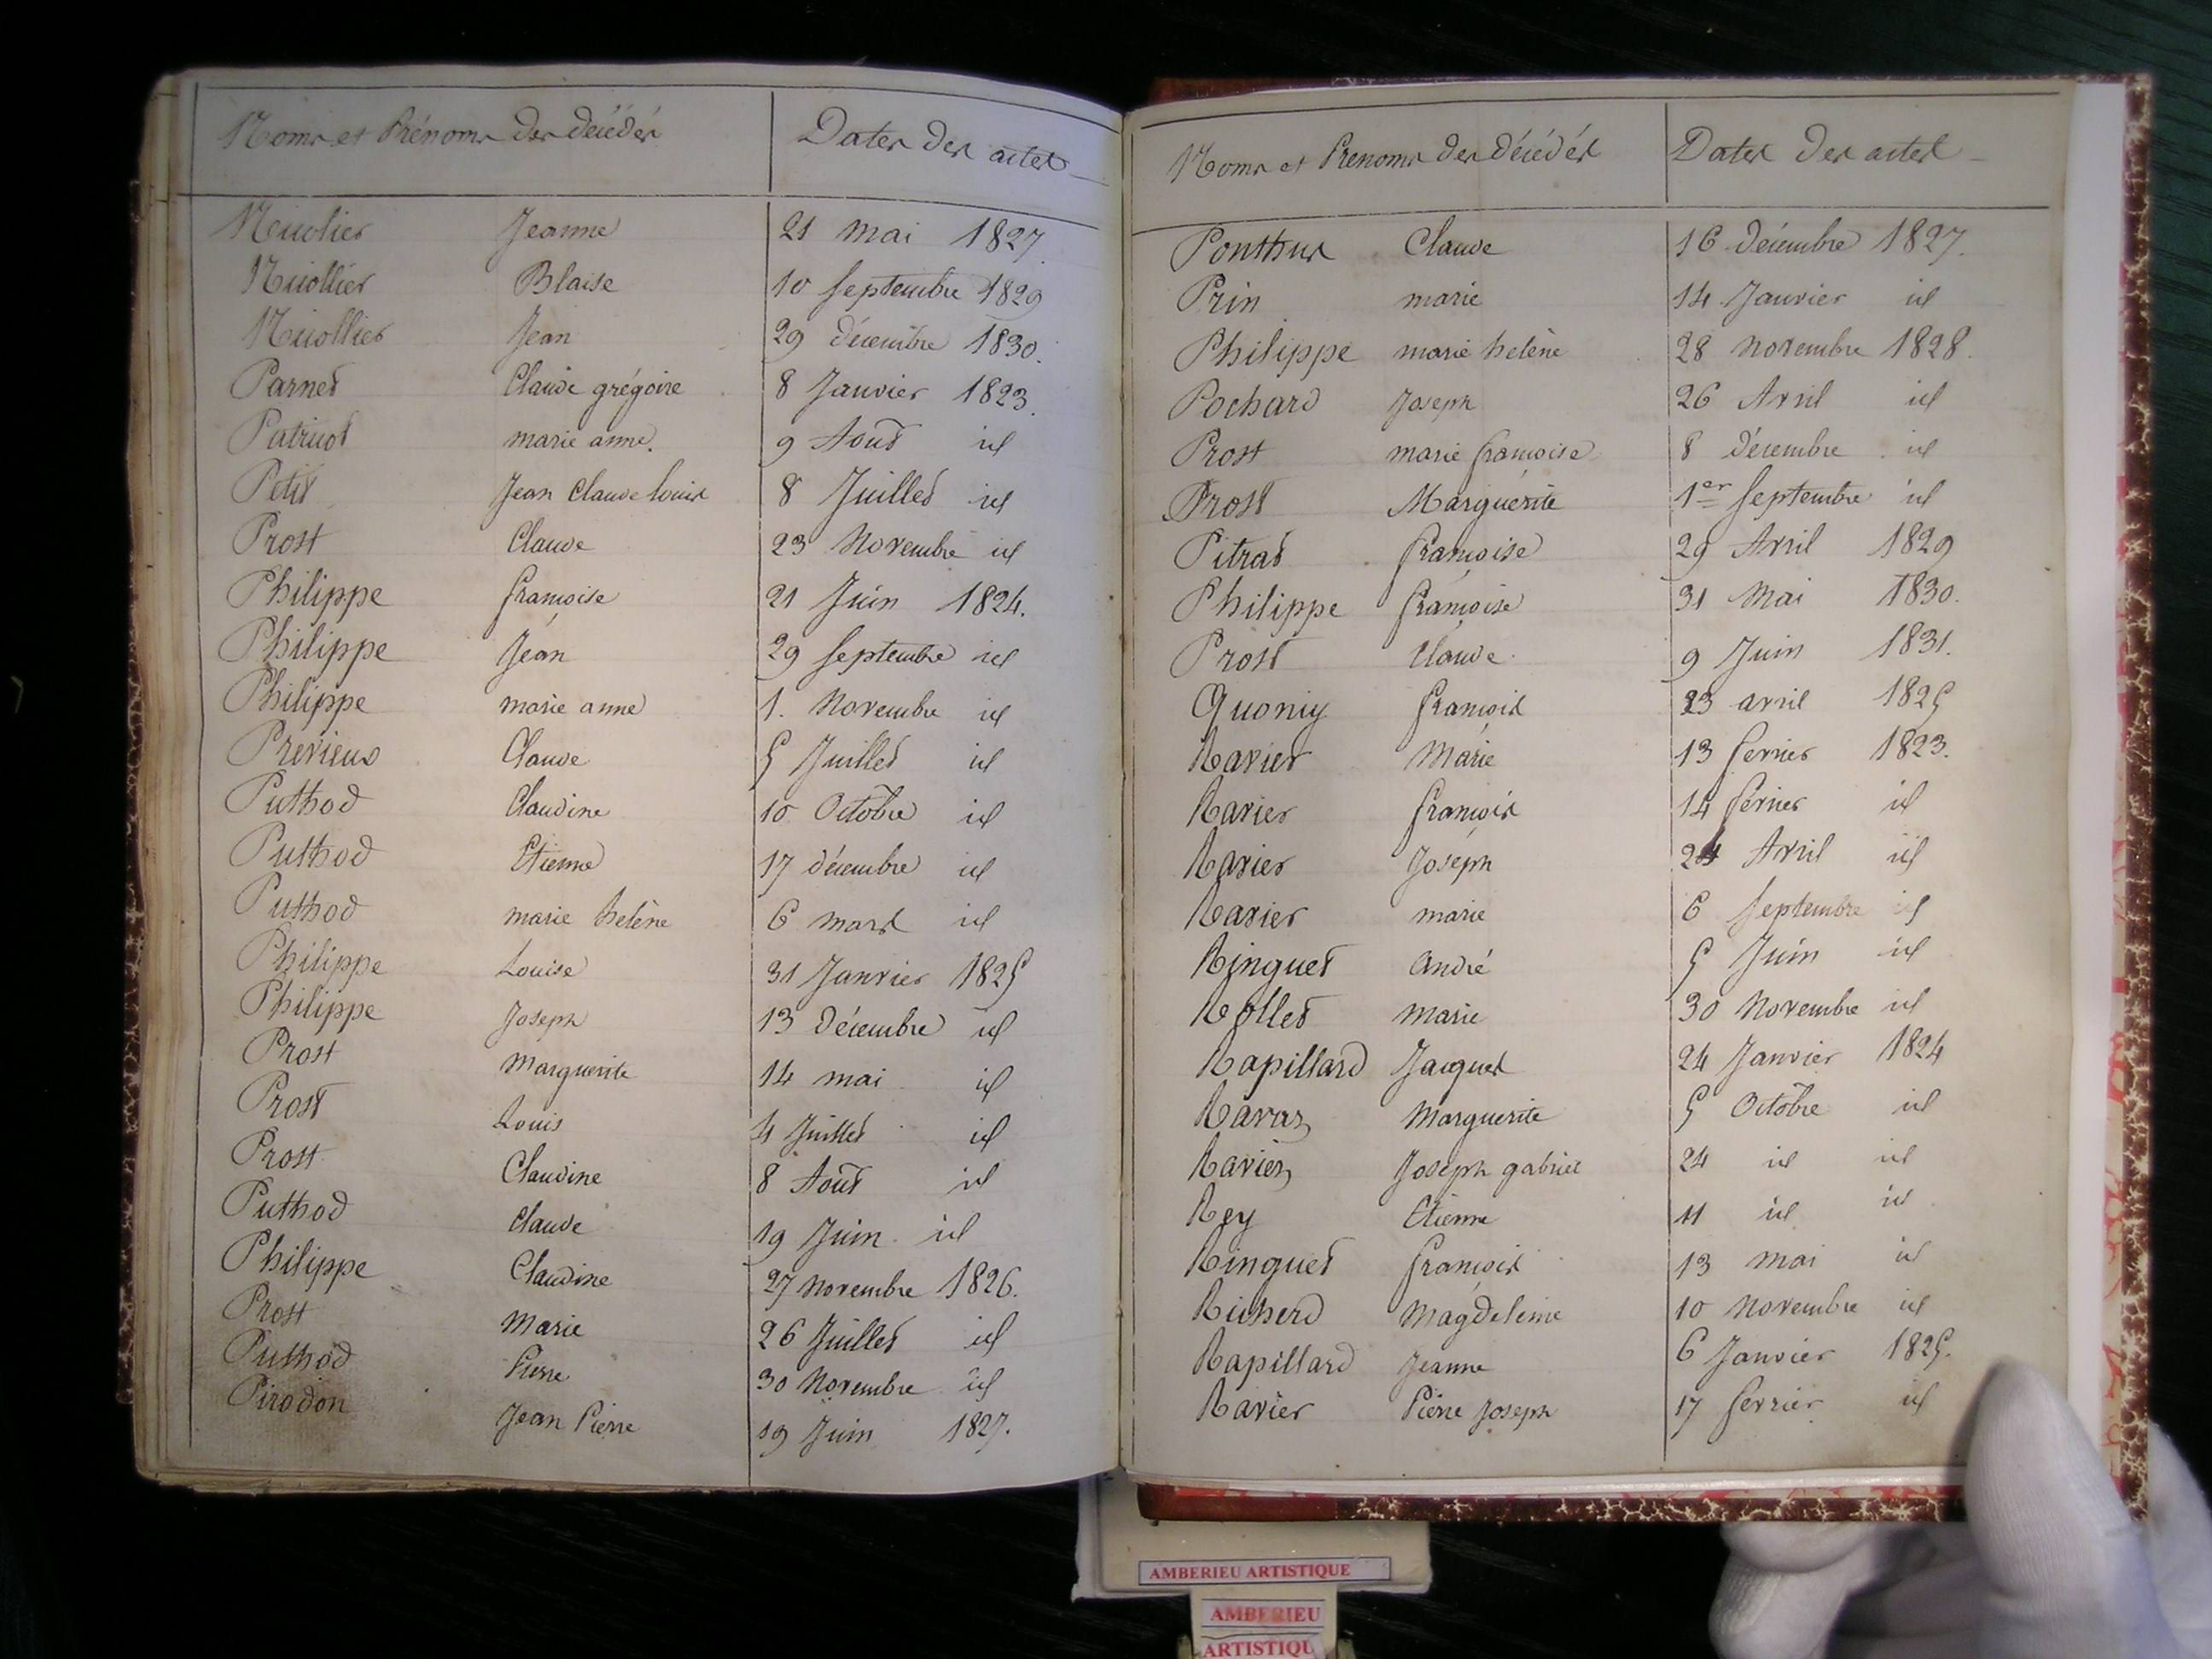 Noms et Prénoms des décédés Dates des actes
Nicolier Jeanne 21 mai 1827
Nicollier Blaise 10 septembre 1829
Nicollier Jean 29 décembre 1830.
Parnet Claude grégoire 8 Janvier 1823.
Patricot marie anne. 9 Aout id
Petit Jean Claude louis 8 Juillet id
Prost Claude 23 Novembre id
Philippe françoise 21 Juin 1824.
Philippe Jean 29 septembre id
Philippe marie anne 1. Novembre id
Previeux Claude 5 Juillet id
Puthod Claudine 10 Octobre id
Puthod Etienne 17 décembre id
Puthod marie heléne 6 mars id
Philippe Louise 31 Janvier 1825
Philippe Joseph 13 décembre id
Prost Marguerite 14 mai id
Prost Louis 4 Juillet id
Prost Claudine 8 Aout id
Puthod Claude 19 Juin id
Philippe Claudine 27 novembre 1826.
Prost Marie 26 Juillet id
Puthod Pierre 30 Novembre id
Pirodon Jean Pierre 19 Juin 1827.
Noms et Prenoms des décédés Dates des actes
Ponthus Claude 16 décembre 1827.
Prin marie 14 Janvier id
Philippe marie heléne 28 novembre 1828.
Pochard Joseph 26 Avril id
Prost marie françoise 8 décembre id
Prost Marguerite 1er septembre id
Pitrat françoise 29 Avril 1829
Philippe françoise 31 Mai 1830.
Prost Claude 9 Juin 1831.
Quoniy françois 23 avril 1825
Ravier Marie 13 fevrier 1823.
Ravier françois 14 fevrier id
Ravier Joseph 24 Avril id
Ravier marie 6 septembre id
Ringuet André 5 Juin id
Rollet Marie 30 Novembre id
Rapillard Jacques 24 Janvier 1824
Ravaz Marguerite 5 Octobre id
Ravier Joseph gabriel 24 id id
Rey Etienne 11 id id
Ringuet françois 13 mai id
Richerd Magdeleine 10 novembre id
Rapillard Jeanne 6 Janvier 1825.
Ravier Pierre Joseph 17 fevrier id
AMBERIEU ARTISTIQUE
AMBERIEU
ARTISTIQU